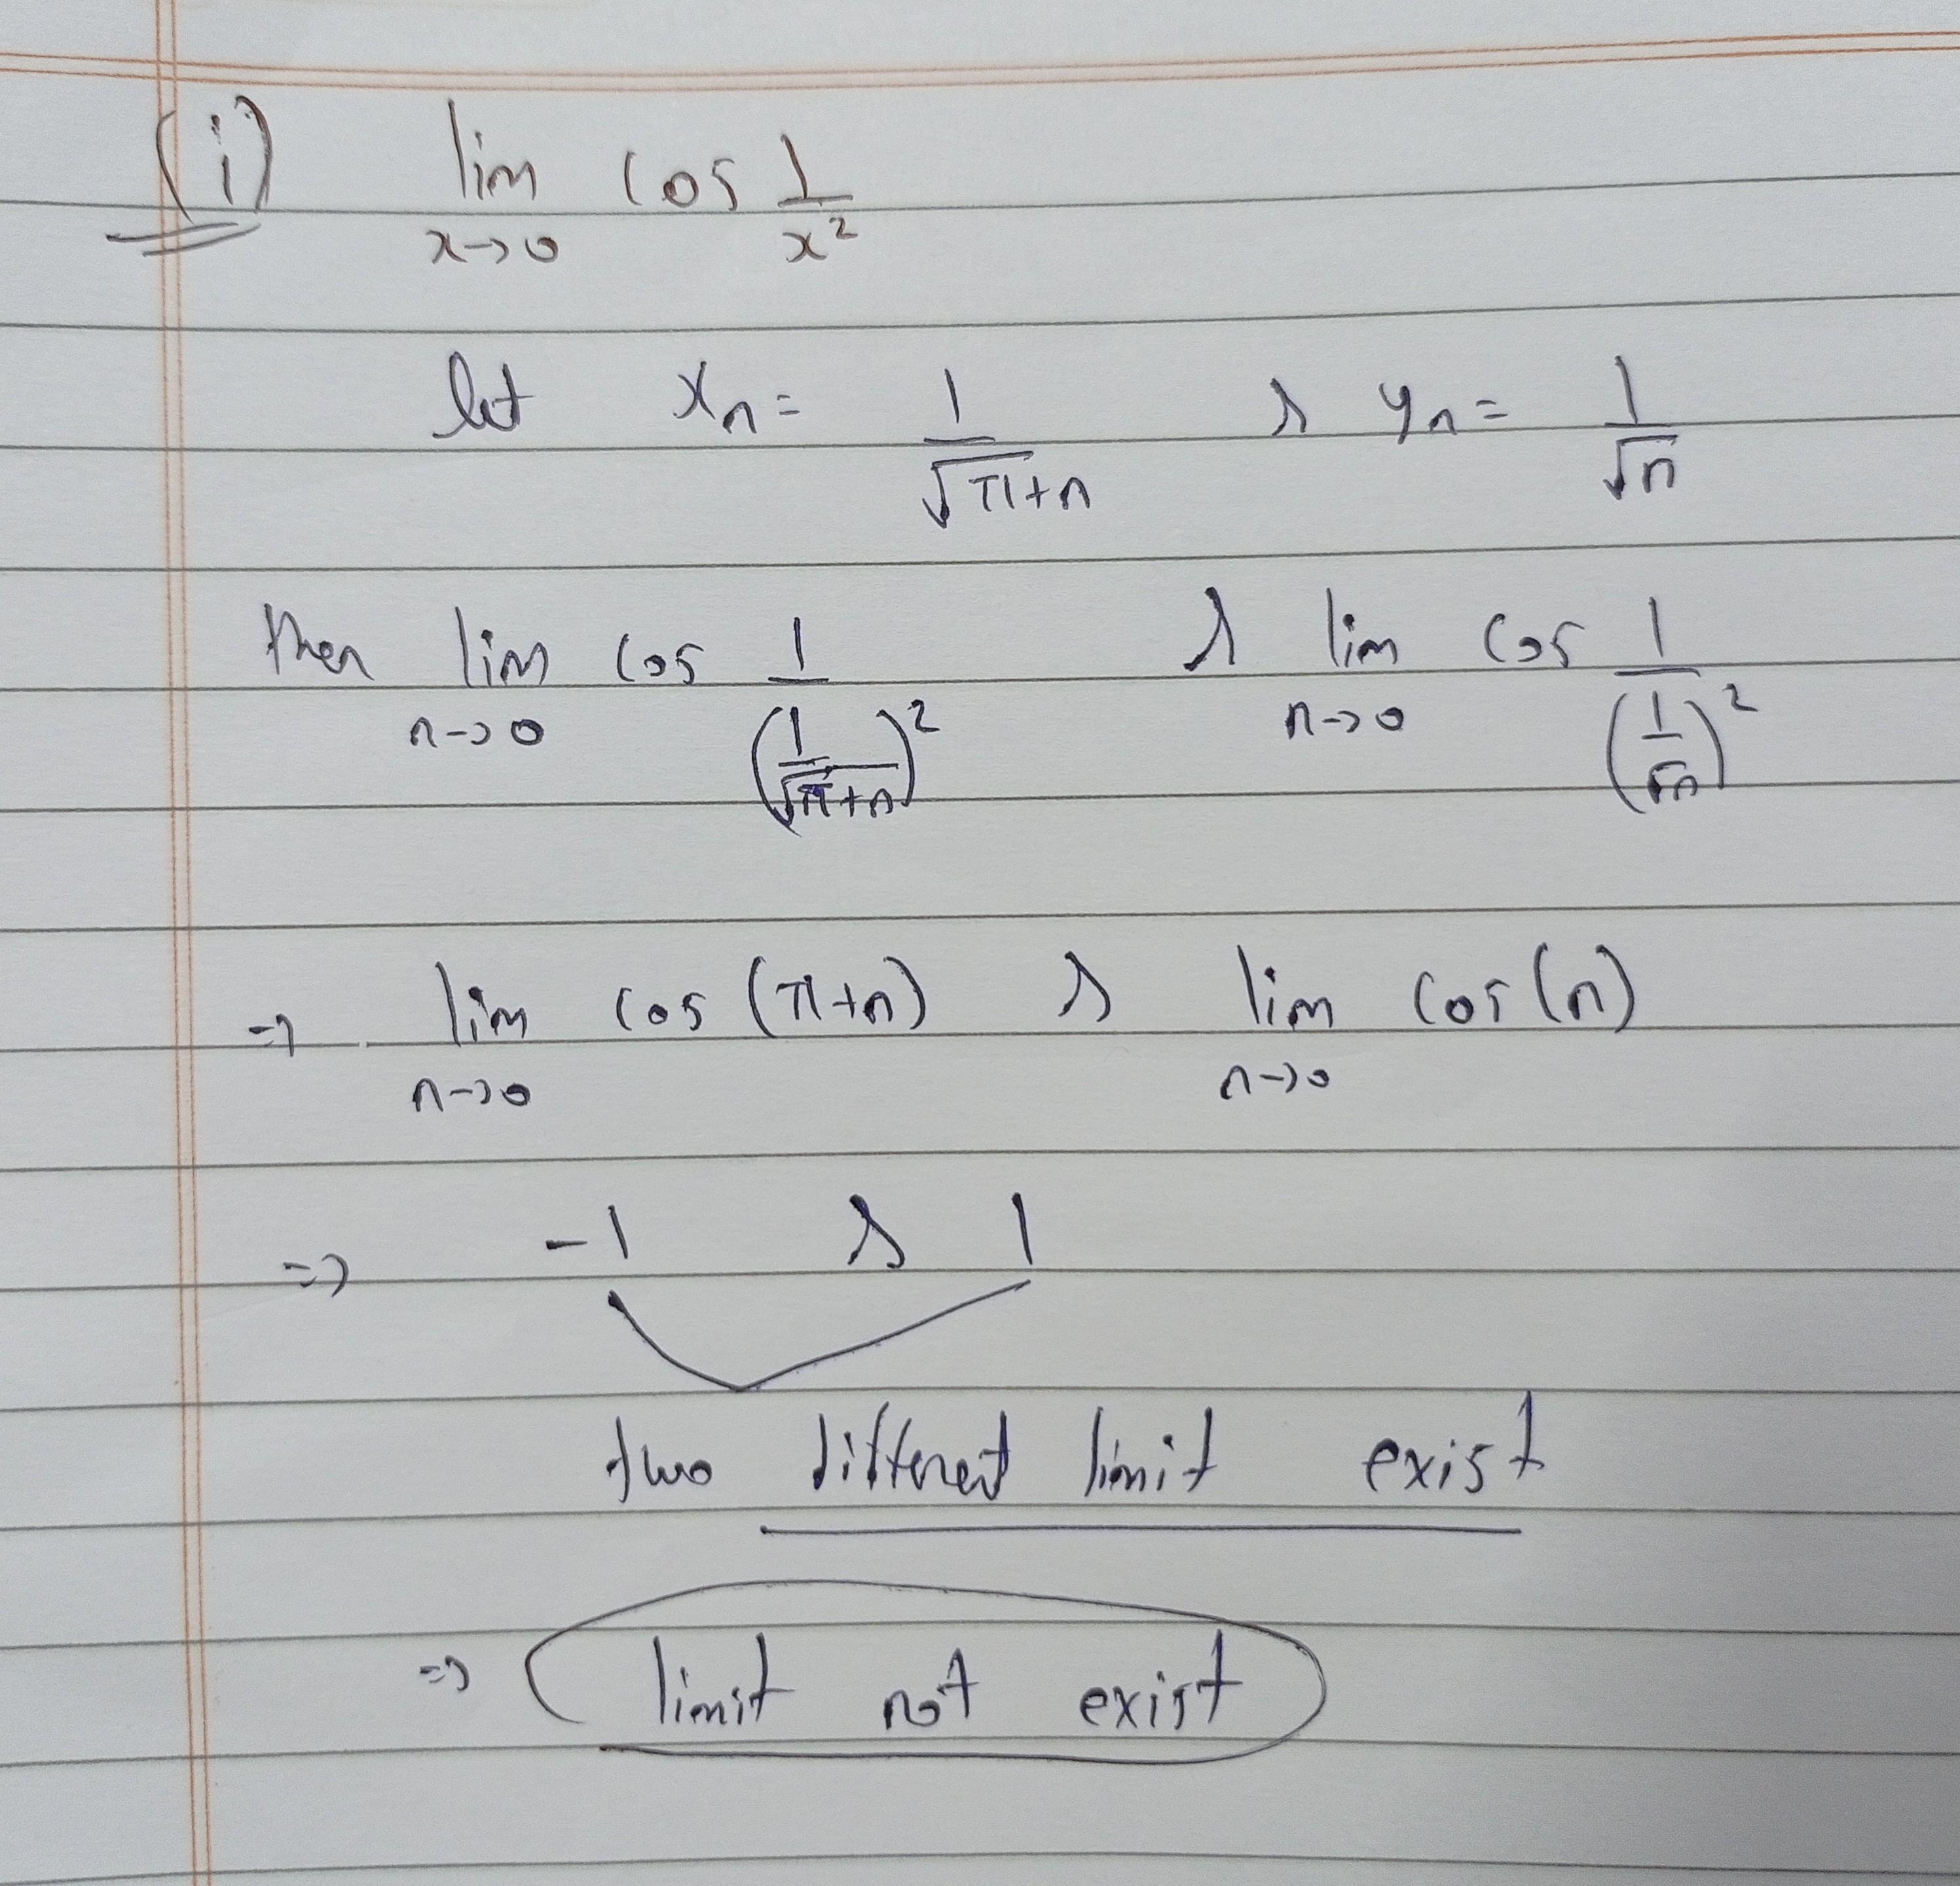 (i) lim x→0 cos 1/x²
let xn = 1/√π+n & yn = 1/√n
then lim n→0 cos 1/(1/√π+n)² & lim n→0 cos 1/(1/√n)²
⇒ lim n→0 cos (π+n) & lim n→0 cos(n)
⇒ -1 & 1
two different limit exist
⇒ limit not exist